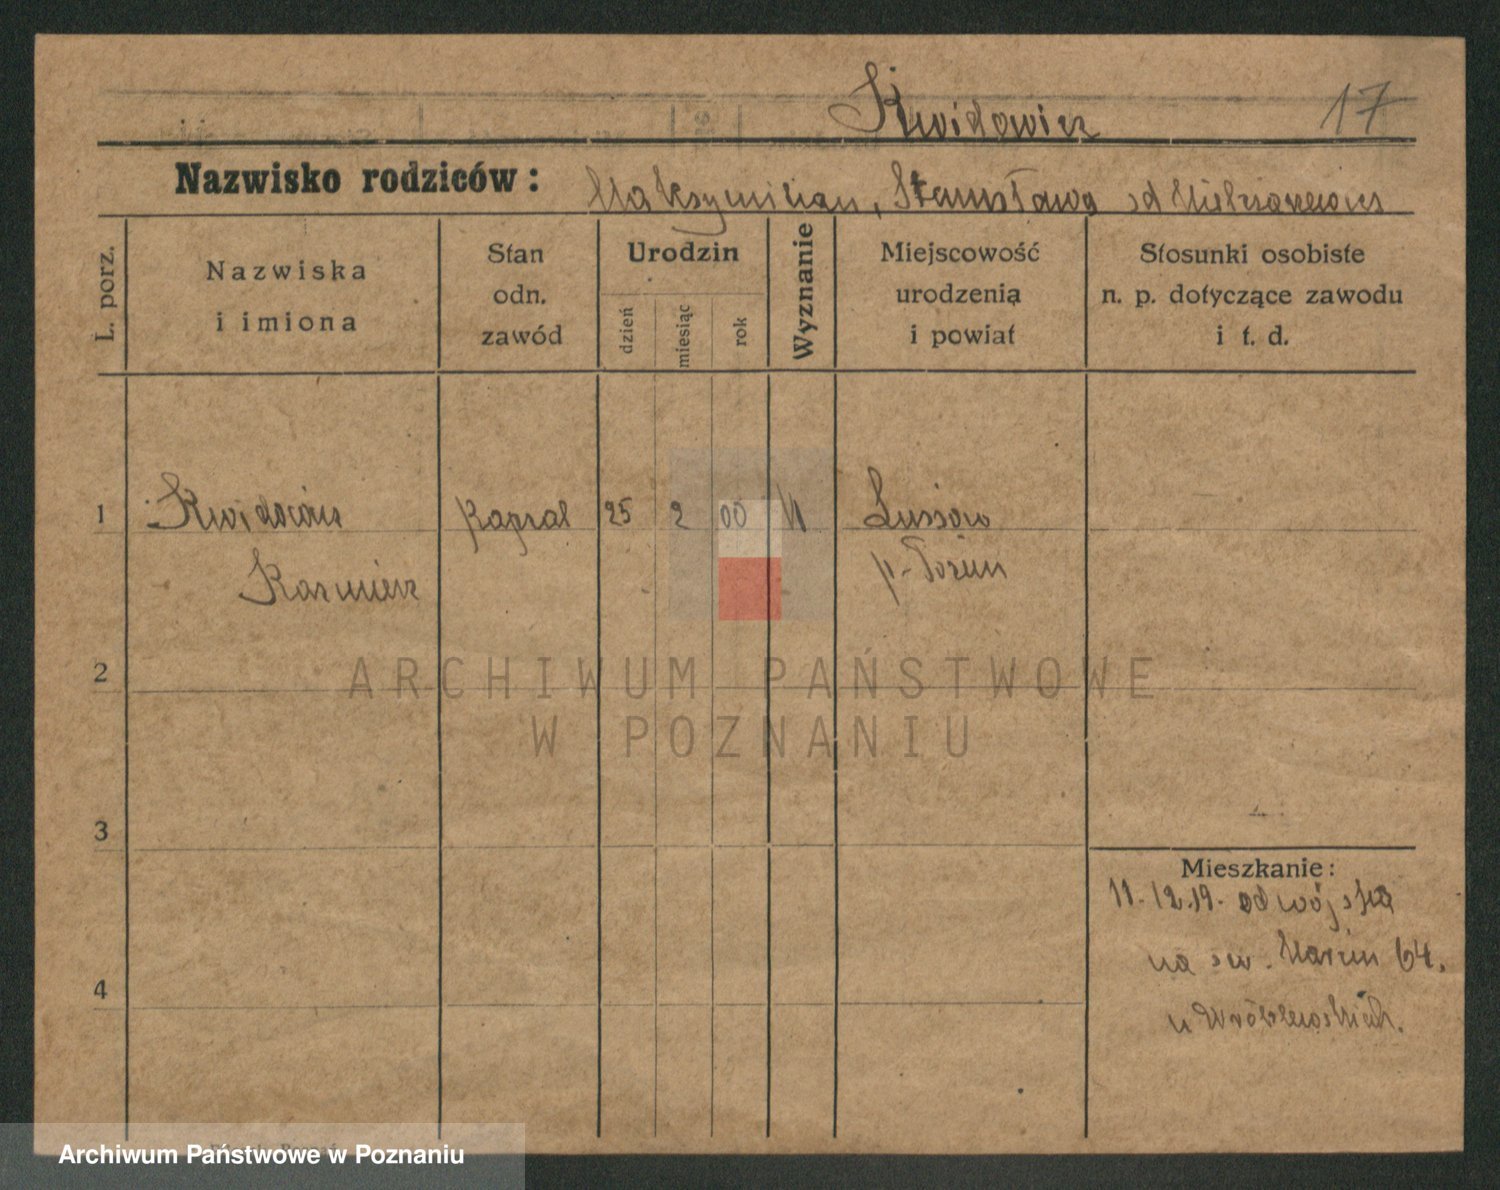 Kwidowicz 17
Nazwisko rodziców: Maksymilian, Stanisława od
L. porz.
Nazwiska
i imiona
Stan
odn.
zawód
Urodzin
dzień
miesiąc
rok
Wyznanie
Miejscowość
urodzenia
i powiat
Stosunki osobiste
n. p. dotyczące zawodu
i t. d.
1 Kwidowicz kapral 25 2 00
Kazmierz p. Toruń
2
ARCHIWUM PAŃSTWOWE
W POZNANIU
3
Mieszkanie:
11.12.19. od wojska
na św. Marcin 64.
4
u Wróblewskich.
Archiwum Państwowe w Poznaniu